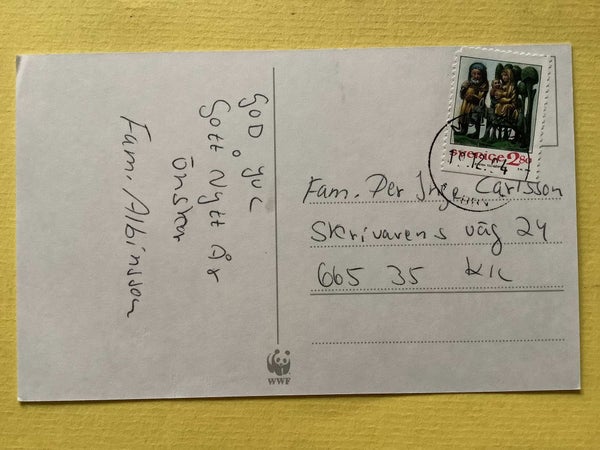 GOD JUL
Gott Nytt År
önskar
Fam. Albinsson
SVERIGE 2.80
Fam. Per Inge Carlsson
Skrivarens väg 24
665 35 Kil
WWF